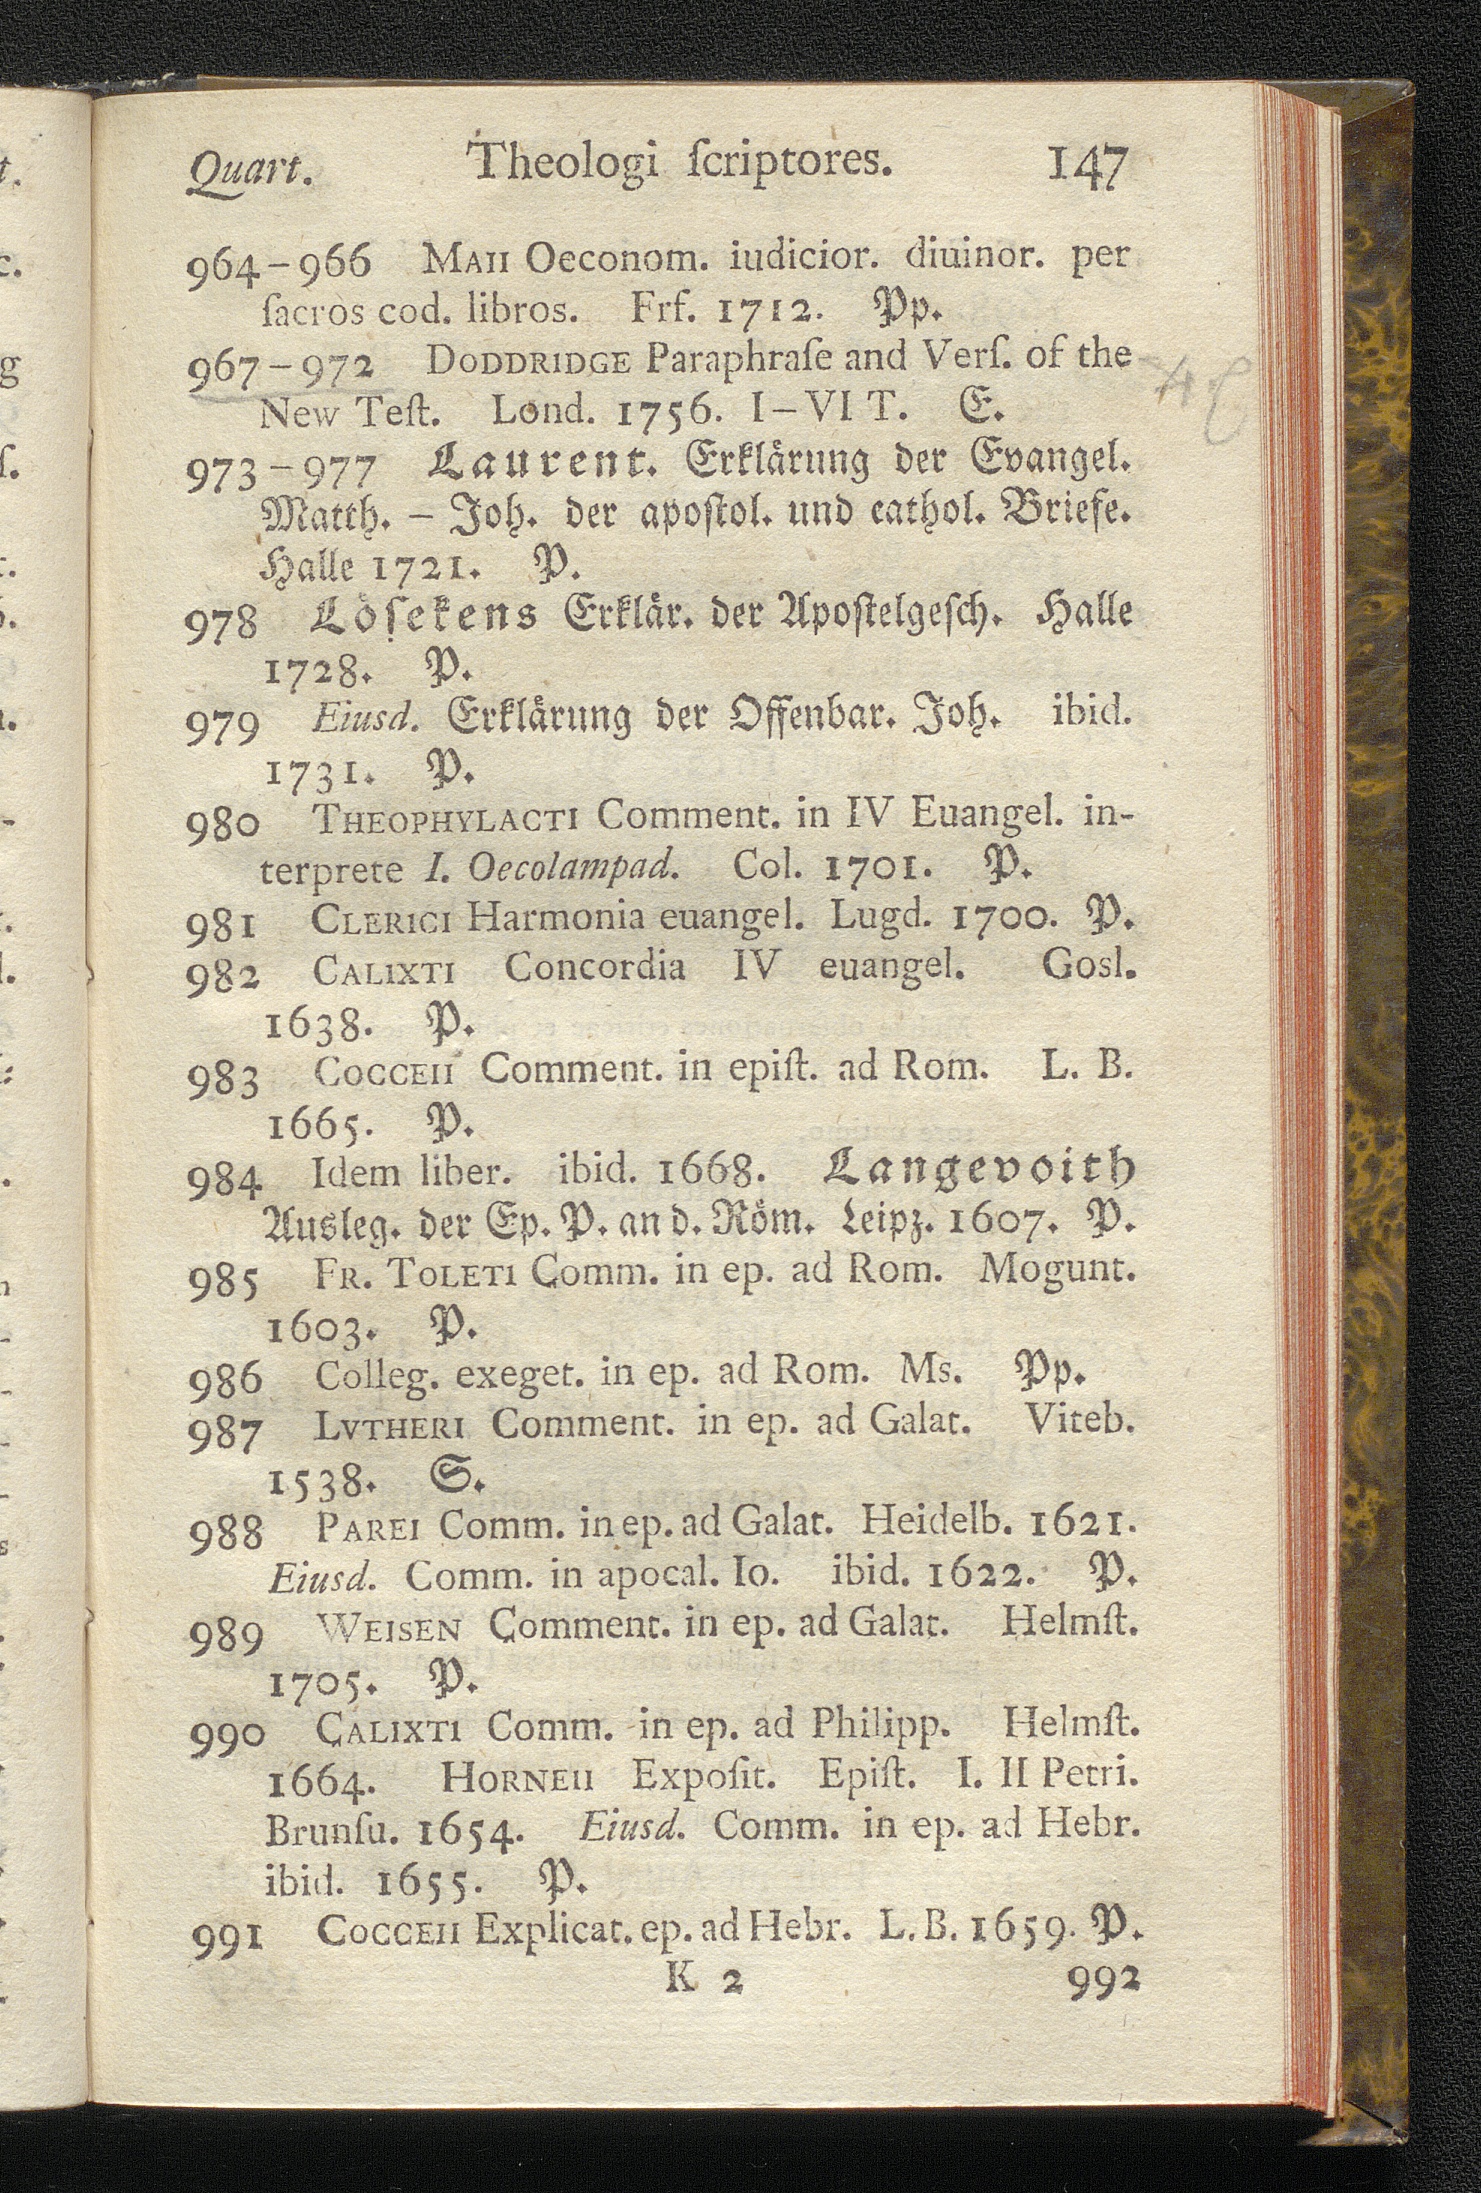 Quart. Theologi ſcriptores. 147
964-966 MAII Oeconom. iudicior. diuinor. per
ſacros cod. libros. Frf. 1712. Pp.
967-972 DODDRIDGE Paraphraſe and Verſ. of the
New Teſt. Lond. 1756. I-VI T. E.
973-977 Laurent. Erklärung der Evangel.
Matth. - Joh. der apoſtol. und cathol. Briefe.
Halle 1721. P.
978 Löſekens Erklär. der Apoſtelgeſch. Halle
1728. P.
979 Eiusd. Erklärung der Offenbar. Joh. ibid.
1731. P.
980 THEOPHYLACTI Comment. in IV Euangel. in-
terprete I. Oecolampad. Col. 1701. P.
981 CLERICI Harmonia euangel. Lugd. 1700. P.
982 CALIXTI Concordia IV euangel. Gosl.
1638. P.
983 COCCEII Comment. in epiſt. ad Rom. L. B.
1665. P.
984 Idem liber. ibid. 1668. Langevoith
Ausleg. der Ep. P. an d. Röm. Leipz. 1607. P.
985 FR. TOLETI Comm. in ep. ad Rom. Mogunt.
1603. P.
986 Colleg. exeget. in ep. ad Rom. Ms. Pp.
987 LVTHERI Comment. in ep. ad Galat. Viteb.
1538. S.
988 PAREI Comm. in ep. ad Galat. Heidelb. 1621.
Eiusd. Comm. in apocal. Io. ibid. 1622. P.
989 WEISEN Comment. in ep. ad Galat. Helmſt.
1705. P.
990 CALIXTI Comm. in ep. ad Philipp. Helmſt.
1664. HORNEII Expoſit. Epiſt. I. II Petri.
Brunſu. 1654. Eiusd. Comm. in ep. ad Hebr.
ibid. 1655. P.
991 COCCEII Explicat. ep. ad Hebr. L. B. 1659. P.
K 2 992